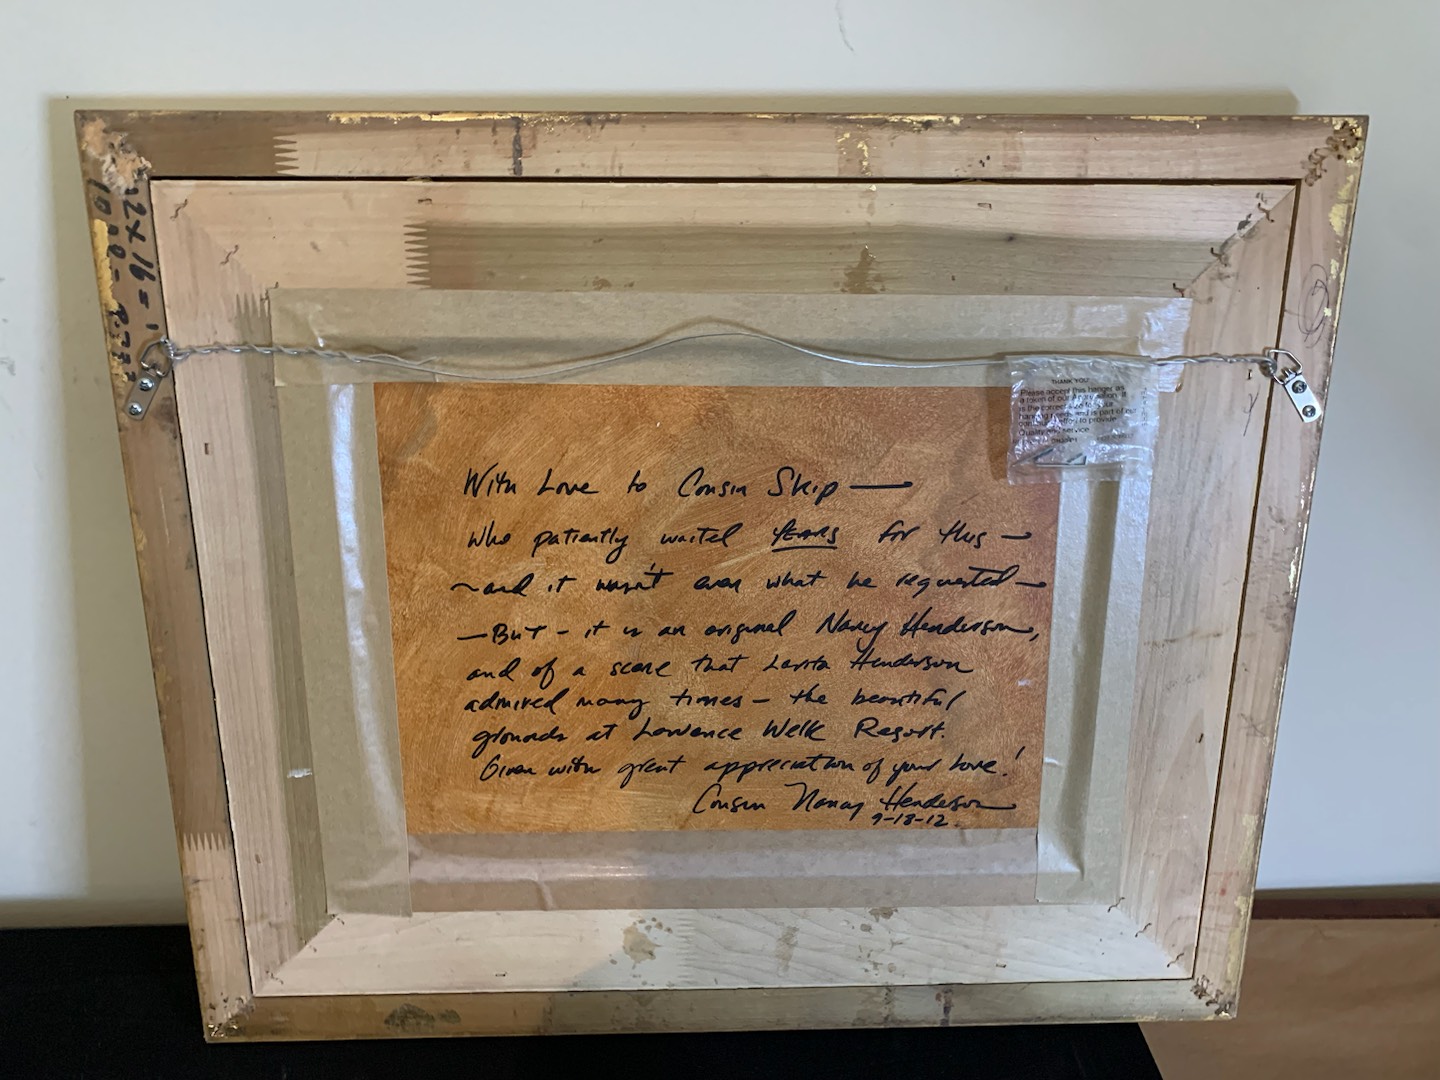 12x16=
THANK YOU!
Please accept this hanger as
a token of our Appreciation. It
is the correct size for your
hanging needs and is part of our
continual effort to provide
Quality and service.
With Love to Cousin Skip —
who patiently waited YEARS for this —
~and it wasn't even what he requested —
— But - it is an original Nancy Henderson,
and of a scene that Lavita Henderson
admired many times - the beautiful
grounds at Lawrence Welk Resort.
Given with great appreciation of your Love!
Cousin Nancy Henderson
9-13-12.